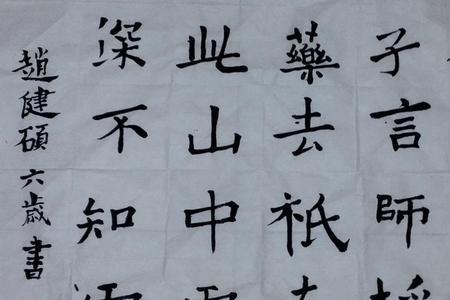 子言師
藥去祇
此山中
深不知
趙健碩六歲書